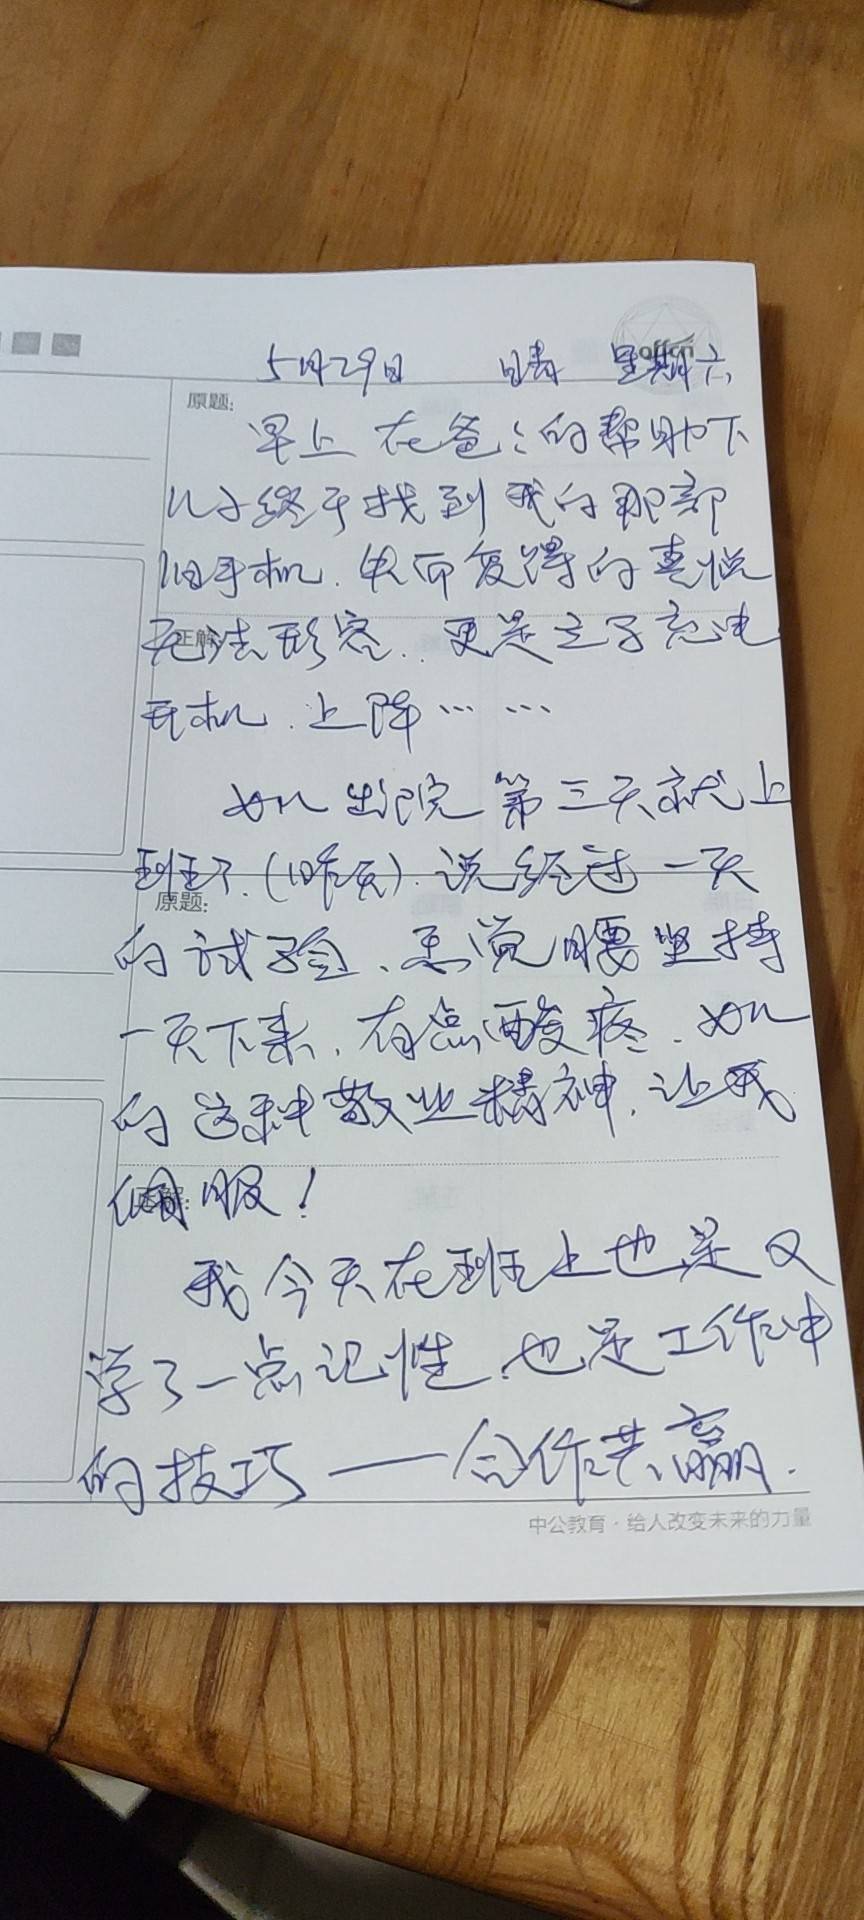 offcn
5月29日 晴 星期六
原题:
早上在爸々的帮助下
儿子终于找到我的那部
旧手机.失而复得的喜悦
正解
无法形容.更是立了充电
开机.上阵……
如儿出院第三天就上
班了.(昨天).说经过一天
原题:
的试验、感觉腰坚持
一天下来,有点酸疼.如儿
的这种敬业精神,让我
正解:
佩服!
我今天在班上也是又
学了一点记性,也是工作中
的技巧——合作共赢.
中公教育·给人改变未来的力量